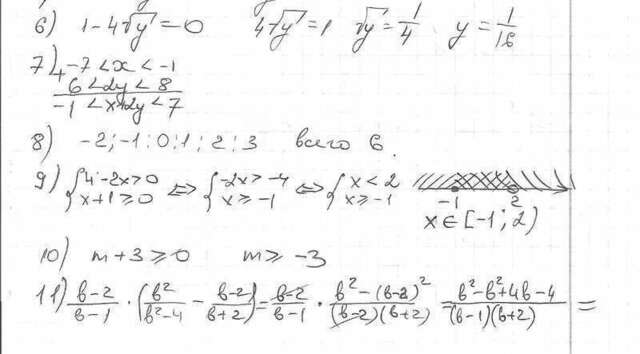 6) 1-4√y=0 4√y=1 √y=1/4 y=1/16
7) + -7<x<-1
6<2y<8
-1<x+2y<7
8) -2;-1;0;1;2;3 всего 6.
9) {4-2x>0 ⇔ {-2x>-4 ⇔ {x<2
x+1≥0 x≥-1 x≥-1
-1 2
x∈[-1;2)
10) m+3≥0 m≥-3
11) (b-2)/(b-1) · (b²/(b²-4) - (b-2)/(b+2)) = (b-2)/(b-1) · (b²-(b-2)²)/((b-2)(b+2)) = (b²-b²+4b-4)/((b-1)(b+2)) =